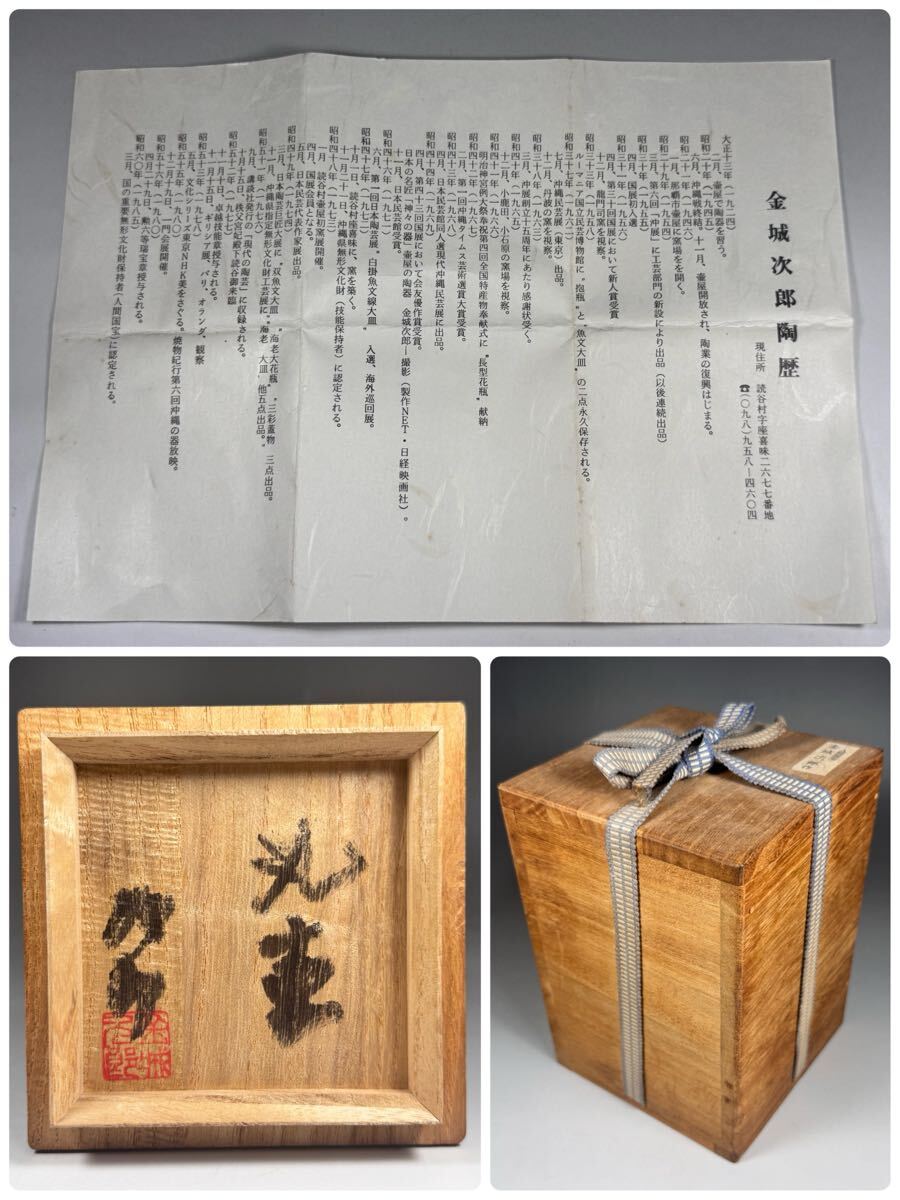 金城次郎陶歴
現住所 読谷村字座喜味二六七七番地
☎(〇九八)九五八―四六〇四
大正十三年(一九二四)
二月、壷屋で陶器を習う。
昭和二十年(一九四五)
六月、沖縄戦終結。十一月、壷屋開放され、陶業の復興はじまる。
昭和二十一年(一九四六)
二月、那覇市壷屋に窯場をを開く。
昭和二十九年(一九五四)
三月、第六回「沖展」に工芸部門の新設により出品(以後連続出品)
昭和三十年(一九五五)
四月、国展初入選
昭和三十一年(一九五六)
四月、第三十回国展において新人賞受賞
十二月、龍門司窯を視察。
ルーマニア国立民芸博物館に〝抱瓶〟と〝魚文大皿〟の二点永久保存される。
昭和三十七年(一九六二)
七月、沖縄民芸展(東京)出品。
十二月、丹波の窯を視察。
昭和三十八年(一九六三)
三月、沖展創立十五周年にあたり感謝状受く。
昭和四十年(一九六五)
十二月、小鹿田、小石原の窯場を視察。
昭和四十二年(一九六七)
明治神宮例大祭奉祝第四回全国特産物奉献式に〝長型花瓶〟献納
二月、第一回沖縄タイムス芸術選賞大賞受賞。
昭和四十三年(一九六八)
四月、日本民芸館同人選現代沖縄民芸展に出品。
昭和四十四年(一九六九)
四月、第四十三回国展において会友優作賞受賞。
日本の名匠「神々の器」壷屋の陶器 金城次郎―撮影(製作NET・日経映画社)。
十一月、日本民芸館賞受賞。
昭和四十六年(一九七一)
六月、第一回日本陶芸展〝白掛魚文線大皿〟入選、海外巡回展。
昭和四十七年(一九七二)
十月一日、読谷村座喜味に、窯を築く。
十一月二十一日、沖縄県無形文化財(技能保持者)に認定される。
昭和四十八年(一九七三)
一月、読谷村壷屋初窯展開催。
四月、国展会員となる。
五月、日本民芸代表作家展出品。
昭和四十九年(一九七四)
三月、日本陶芸巨匠大展に〝双魚文大皿〟〝海老大花瓶〟〝三彩蓋物〟三点出品。
十一月、沖縄県指定無形文化財工芸展に〝海老〟大皿〟他五点出品。
昭和五十一年(一九七六)
九月、講談社発行の「現代の陶芸」に収録される。
十月十五日、秩父宮妃殿下読谷御来臨
昭和五十二年(一九七七)
十一月十日、卓越技能章授与される。
十一月十五日、ギリシア展、パリ、オランダ、観察
昭和五十三年(一九七八)
五月、文化シリーズ東京NHK美をさぐる。焼物紀行第六回沖縄の器放映。
昭和五十五年(一九八〇)
十二月十九日、一門会展開催。
昭和五十六年(一九八一)
四月二十九日、勲六等瑞宝章授与される。
昭和六〇年(一九八五)
三月、国の重要無形文化財保持者(人間国宝)に認定される。
次郎